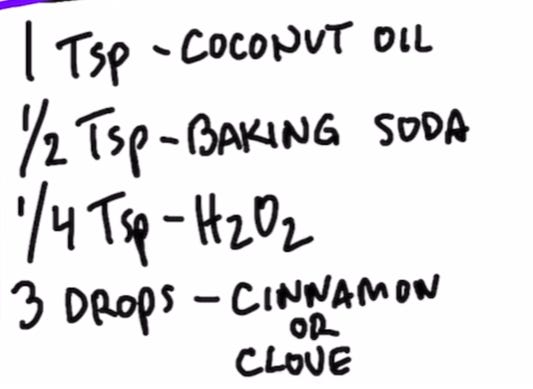 1 Tsp - COCONUT OIL
1/2 Tsp - BAKING SODA
1/4 Tsp - H2O2
3 DROPS - CINNAMON
OR
CLOVE